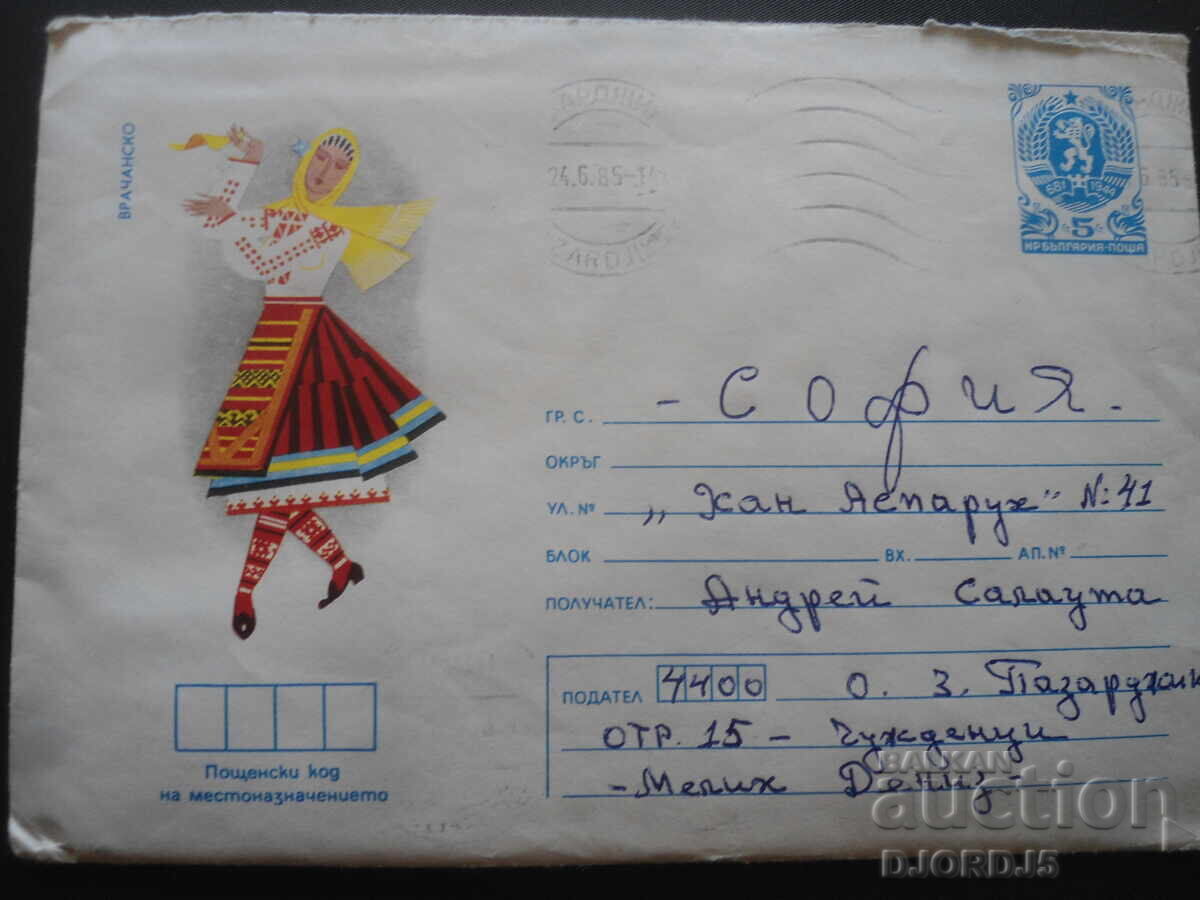 ВРАЧАНСКО
24.6.85
681 1944
5
НР БЪЛГАРИЯ-ПОЩА
ГР. С. - СОФИЯ.
ОКРЪГ
УЛ. № „Хан Аспарух" №: 41
БЛОК ВХ. АП. №
ПОЛУЧАТЕЛ: Андрей Салаута
ПОДАТЕЛ 4400 О. З. Пазарджик
ОТР. 15 - Чужденци
- Мелих Дениз -
Пощенски код
на местоназначението
BALKAN
auction
DJORDJ5